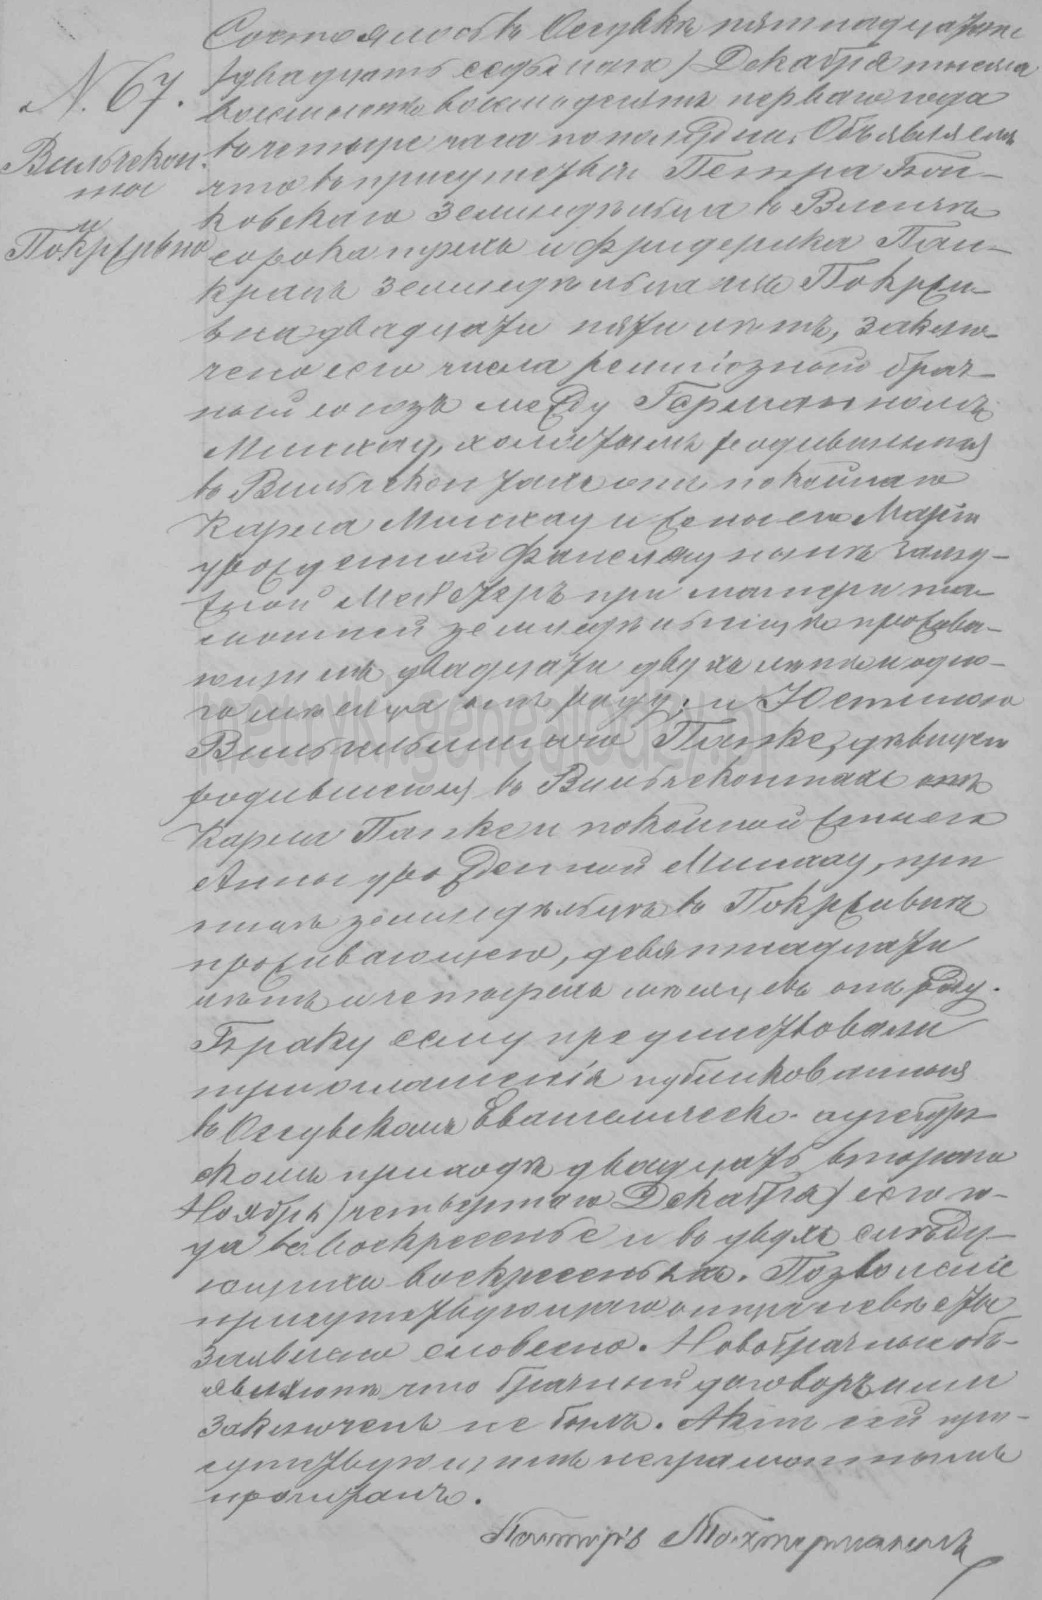 N. 67.
Вильчекон
таль
и
Покржывно
Состоялось въ Осувкѣ пятнадцатаго
(двадцать седьмаго) Декабря тысяча
восемьсотъ восемьдесятъ перваго года
въ четыре часа по полудни. Объявляемъ
что въ присутствіи Петра Бон-
ковскаго земледѣльца въ
сорока трехъ и Фридериха Пан-
крацъ земледѣльца изъ Покржи-
вна двадцати пяти лѣтъ, заклю-
чено сего числа религіозный брач-
ный союзъ между Германномъ
Милхау, холостымъ родившимся
въ Вильчеконталѣ сынъ покойнаго
Карла Милхау и жены его Маріи
урожденной нынѣ замуж-
ной при матери та-
мошней земледѣльницѣ прожива-
ющимъ двадцати двухъ лѣтъ и одно-
го мѣсяца отъ роду; и Юстиною
Вильгельминою Панке, дѣвицею
родившеюся въ Вильчеконталѣ отъ
Карла Панке и покойной жены его
Анны урожденной Милхау, при
отцѣ земледѣльцѣ въ Покрживнѣ
проживающею, девятнадцати
лѣтъ и четырехъ мѣсяцевъ отъ роду.
Браку сему предшествовали
приглашенія публикованныя
въ Осувскомъ Евангелическо-аугсбург-
скомъ приходѣ двадцать втораго
Ноября (четвертаго Декабря) сего го-
да въ воскресенье и въ двухъ слѣду-
ющихъ воскресеньяхъ. Позволеніе
присутствующаго отца невѣсты
заявлено словесно. Новобрачные объ-
являютъ что брачный договоръ ими
заключенъ не былъ. Актъ сей при-
сутствующимъ неграмотнымъ
прочитанъ.
Пасторъ
metryki.genealodzy.pl